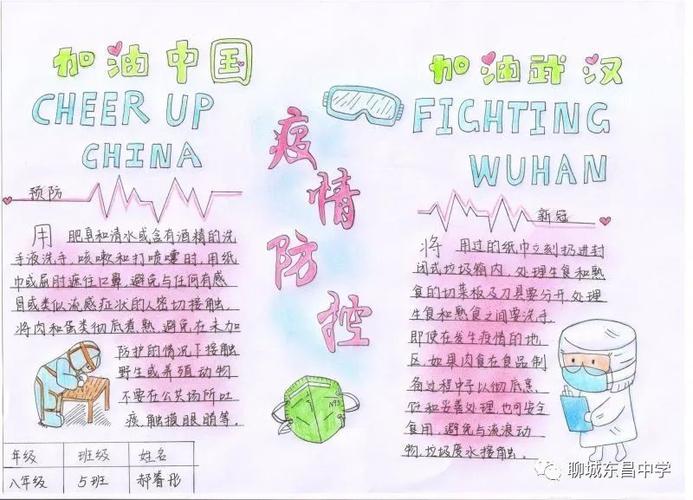 加油中国
CHEER UP
CHINA
预防
用肥皂和清水或含有酒精的洗
手液洗手,咳嗽和打喷嚏时,用纸
巾或屈肘遮住口鼻,避免与任何有感
冒或类似流感症状的人密切接触,
将肉和蛋类彻底煮熟,避免在未加
防护的情况下接触
野生或养殖动物
不要在公共场所吐
痰,触摸眼睛等,
年级 班级 姓名
八年级 5班
疫情防控
N95
加油武汉
FIGHTING
WUHAN
新冠
将用过的纸巾立刻扔进封
闭式垃圾箱内,处理生食和熟
食的切菜板及刀具要分开,处理
生食和熟食之间要洗手,
即使在发生疫情的地
区,如果肉食在食品制
备过程中予以彻底烹
饪和妥善处理,也可安全
食用,避免与流浪动
物,垃圾废水接触,
聊城东昌中学